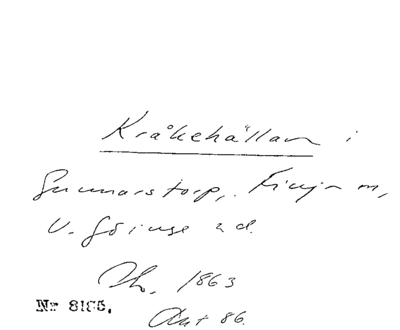 Kråkehällan i
Gunnarstorp, Finja sn,
V. Göinge hd.
1863
Nr 8185.
Ant 86.